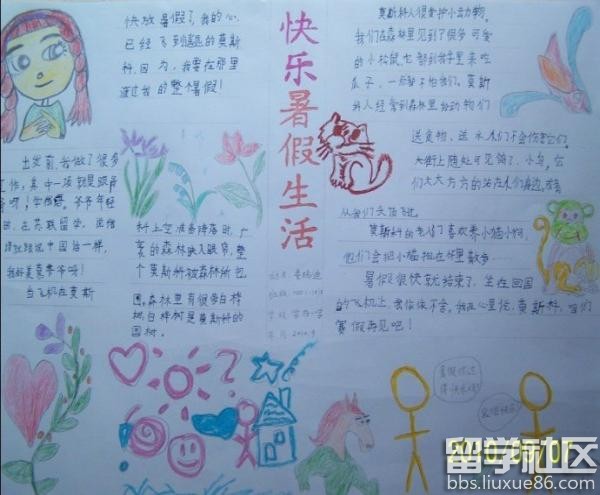 快乐暑假生活
快放暑假了,我的心
已经飞到遥远的莫斯
科,因为,我要在那里
度过我的整个暑假!
出发前,我做了很多
工作,其中一项就是跟爷
爷
年轻
在苏联留学,
说中国话一样,
我好羡慕爷爷啊!
当飞机在莫斯
科上空准备降落时,广
袤的森林映入眼帘,整
个莫斯科被森林所包
围,森林里有很多白桦
树,白桦树是莫斯科的
国树。
莫斯科人很爱护小动物,
我们在森林里见到了很多可爱
的小松鼠,它都到我手里来吃
瓜子,一点都不怕我们。莫斯
科人经常到森林里给动物们
送食物,送水,人们不会伤害它们。
大街上随处可见鸽子、小鸟,它
们大大方方的站在人们身边,或者
从我们头顶飞过
莫斯科的老人们喜欢养小猫小狗,
他们会把小猫抱在怀里散步
暑假很快就结束了,坐在回国
的飞机上,我依依不舍,我在心里说:莫斯科,咱们
寒假再见吧!
姓名:
班级:
学校:
年月:2010.9
暑假你过
得快乐吗?
2010/09/07
留学社区
bbs.liuxue86.com